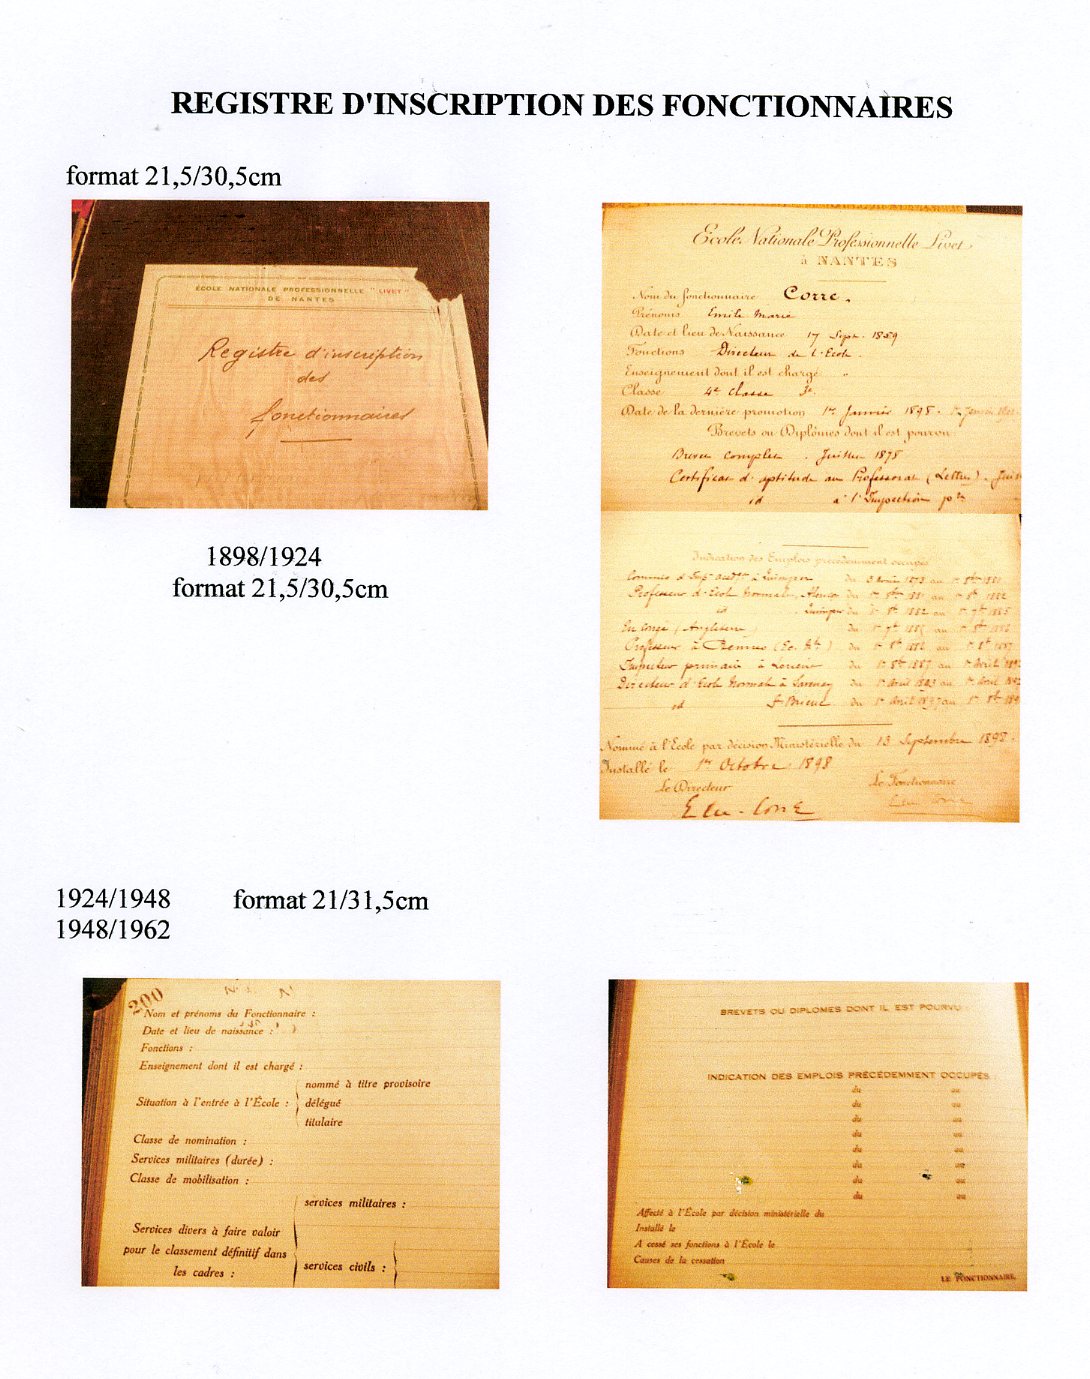 REGISTRE D'INSCRIPTION DES FONCTIONNAIRES
format 21,5/30,5cm
ÉCOLE NATIONALE PROFESSIONNELLE "LIVET"
DE NANTES
Registre d'inscription
des
fonctionnaires
1898/1924
format 21,5/30,5cm
Ecole Nationale Professionnelle Livet
à NANTES
Nom du fonctionnaire Corre.
Prénoms Emile Marie
Date et lieu de Naissance 17 Sept. 1859
Fonctions Directeur de l'Ecole.
Enseignement dont il est chargé "
Classe 4e classe 3e.
Date de la dernière promotion 1er Janvier 1898.
Brevets ou Diplômes dont il est pourvu
Brevet complet. Juillet 1878
Certificat d'aptitude au Professorat (Lettres).
id à l'Inspection
Indication des Emplois précédemment occupés
Commis d'Insp. acad. à Quimper du au
Professeur d'Ecole Normale, du au 1882
id Quimper du 1882 au 1885
En congé (Angleterre) du 1885 au
Professeur à Rennes du 1886 au 1887
Inspecteur primaire à Lorient du 1887 au 1er Avril
Directeur d'Ecole Normale à Savenay du 1er Avril au 1er Avril
id St Brieuc du 1er Avril 1897 au
Nommé à l'Ecole par décision Ministérielle du 13 Septembre 1898.
Installé le 1er Octobre 1898
Le Directeur Le Fonctionnaire
1924/1948 format 21/31,5cm
1948/1962
200
Nom et prénoms du Fonctionnaire :
Date et lieu de naissance :
Fonctions :
Enseignement dont il est chargé :
nommé à titre provisoire
Situation à l'entrée à l'École : délégué
titulaire
Classe de nomination :
Services militaires (durée) :
Classe de mobilisation :
services militaires :
Services divers à faire valoir
pour le classement définitif dans
les cadres :
services civils :
BREVETS OU DIPLOMES DONT IL EST POURVU
INDICATION DES EMPLOIS PRÉCÉDEMMENT OCCUPÉS
du au
du au
du au
du au
du au
du au
du au
du au
Affecté à l'École par décision ministérielle du
Installé le
A cessé ses fonctions à l'École le
Causes de la cessation
LE FONCTIONNAIRE,